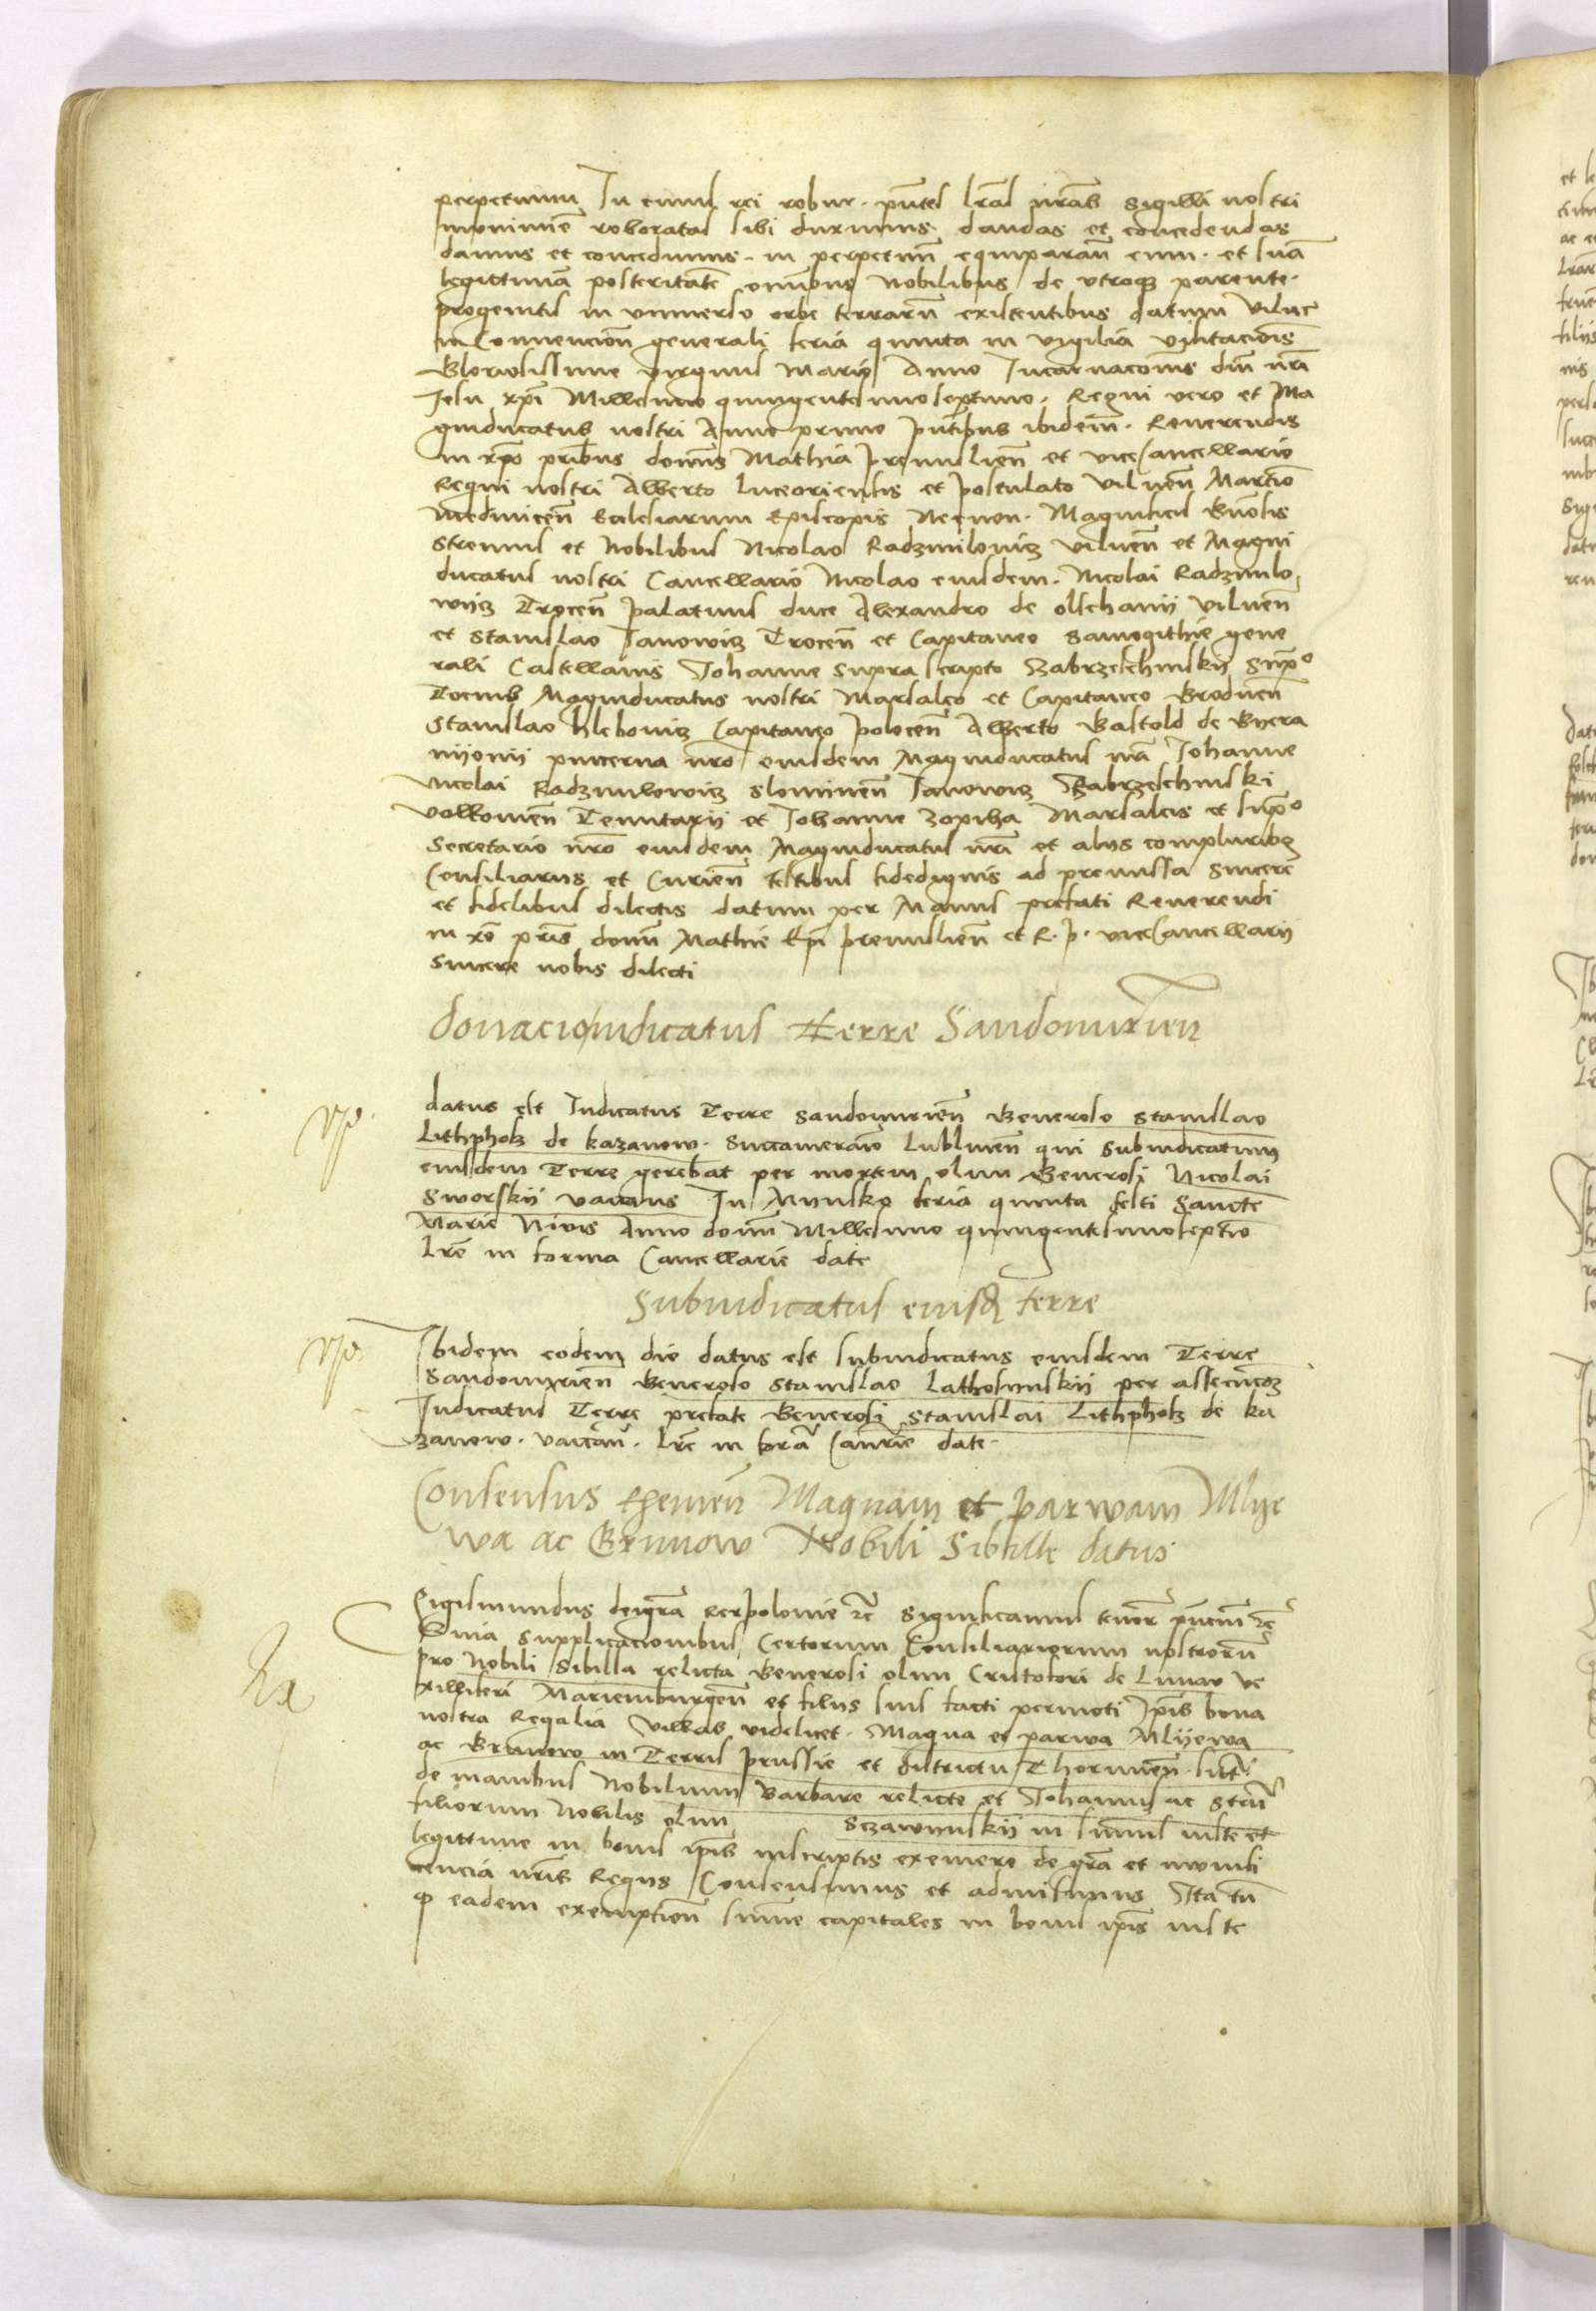 perpetuum In cuius rei robur. pñtes lrãs nrãs sigilli nostri
munimine roboratas sibi duximus dandas et concedendas
damus et concedimus. in perpetuũ equiparañ eum. et suã
legittimã posteritatẽ omĩbus nobilibus de utroqꝫ parente.
progenitis in vniuerso orbe terrarũ existentibus datum Vilne
in Conuencioñ generali feria quinta in vigilia visitacõis
Gloriosissime virginis Marie Anno Incarnacõnis dni nrĩ
Jesu xpĩ Millesimo quingentesimo septimo. Regni vero et Ma
gniducatus nostri Anno primo pñtibus ibidem. Reuerendis
in xpõ pribus dominis Mathia premislieñ et viceCancellario
Regni nostri Alberto luceoriensis et postulato Vilneñ Martio
mednicẽn Ecclesiarum Episcopis Necnon. Magnificis Gñosis
strenuis et Nobilibus Nicolao Radzivilovicz vilneñ et Magni
ducatus nostri Cancellario Nicolao eiusdem. Nicolai Radzivilo
wicz Troceñ palatinis duce Alexandro de olschanii vilneñ
et Stanislao Janowicz Troceñ et Capitaneo Samogithie gene
rali Castellanis Johanne supra scripto Zabrzeschinskij Sup͞o
Magniducatus nostri Marsalco et Capitaneo Grodneñ
Stanislao hlebovicz Capitaneo poloceñ Alberto Gastold de Gyera
nijonij pincerna nro eiusdem Magniducatus nrĩ Johanne
Nicolai Radzivilowicz slonimeñ Janowicz Zabrzeschinski
volkowieñ Tenutarij et Johanne Zopiha Marsalcis et sup͞o
Secretario nrõ eiusdem Magniducatus nrĩ et alijs compluribꝫ
Consiliarijs et Curieñ testibus fidedignis ad premissa sincere
et fidelibus dilectis datum per Manus prefati Reuerendi
in xõ pris domĩ Mathie Epĩ premislieñ et R. p. viceCancellarij
sincere nobis dilecti
donacio Judicatus Terre Sandomirieñ
datus est Judicatus Terre sandomirieñ Generoso Stanislao
Lithpholz de kazanow. Succamerario Lublineñ qui Subiudicatum
eiusdem Terre gerebat per mortem olim Generosi Nicolai
Sworskij vacans In Mynsko feria quinta festi Sancte
Marie Nivis Anno domĩ Millesimo quingentesimoseptĩo
Lrẽ in forma Cancellarie date
Subiudicatus eiusdẽ terre
Ibidem eodem die datus est subiudicatus eiusdem Terre
Sandomirieñ Generoso Stanislao Lathosinskij per assecucõꝫ
Judicatus Terre prefate Generosi Stanislai Lithpholz de ka
zanow. vacañ. Lrẽ in forã Cancrie date.
Consensus Magnam et parwam Mlye
wa ac Grunow Nobili Sibille datus
Sigismundus deigrã rex polonie ꝛc̃ Significamus tenor̃ pñciũ ꝛc̃
Quia supplicacionibus Certorum Consiliariorum nostrorũ
pro Nobili Sibilla relicta Generosi olim Cristofori de Lunaw ve
xilliferi Mariemburgeñ et filijs suis facti permoti Ipis bona
nostra Regalia Villas videlicet. Magna et parwa Mlyewa
ac Grunow in Terris prussie et districtu Thoruneñ sitã
de manibus Nobilium Barbare relicte et Johannis ac Stañ
filiorum Nobilis olim Sczawynskij in summis iuste et
legittime in bonis ipĩs inscriptis eximere de grã et munifi
cencia nrĩs Regijs Consensimus et admisimus Ita tñ
ꝙ eadem exempcionẽ summe capitales in bonis ipĩs iuste